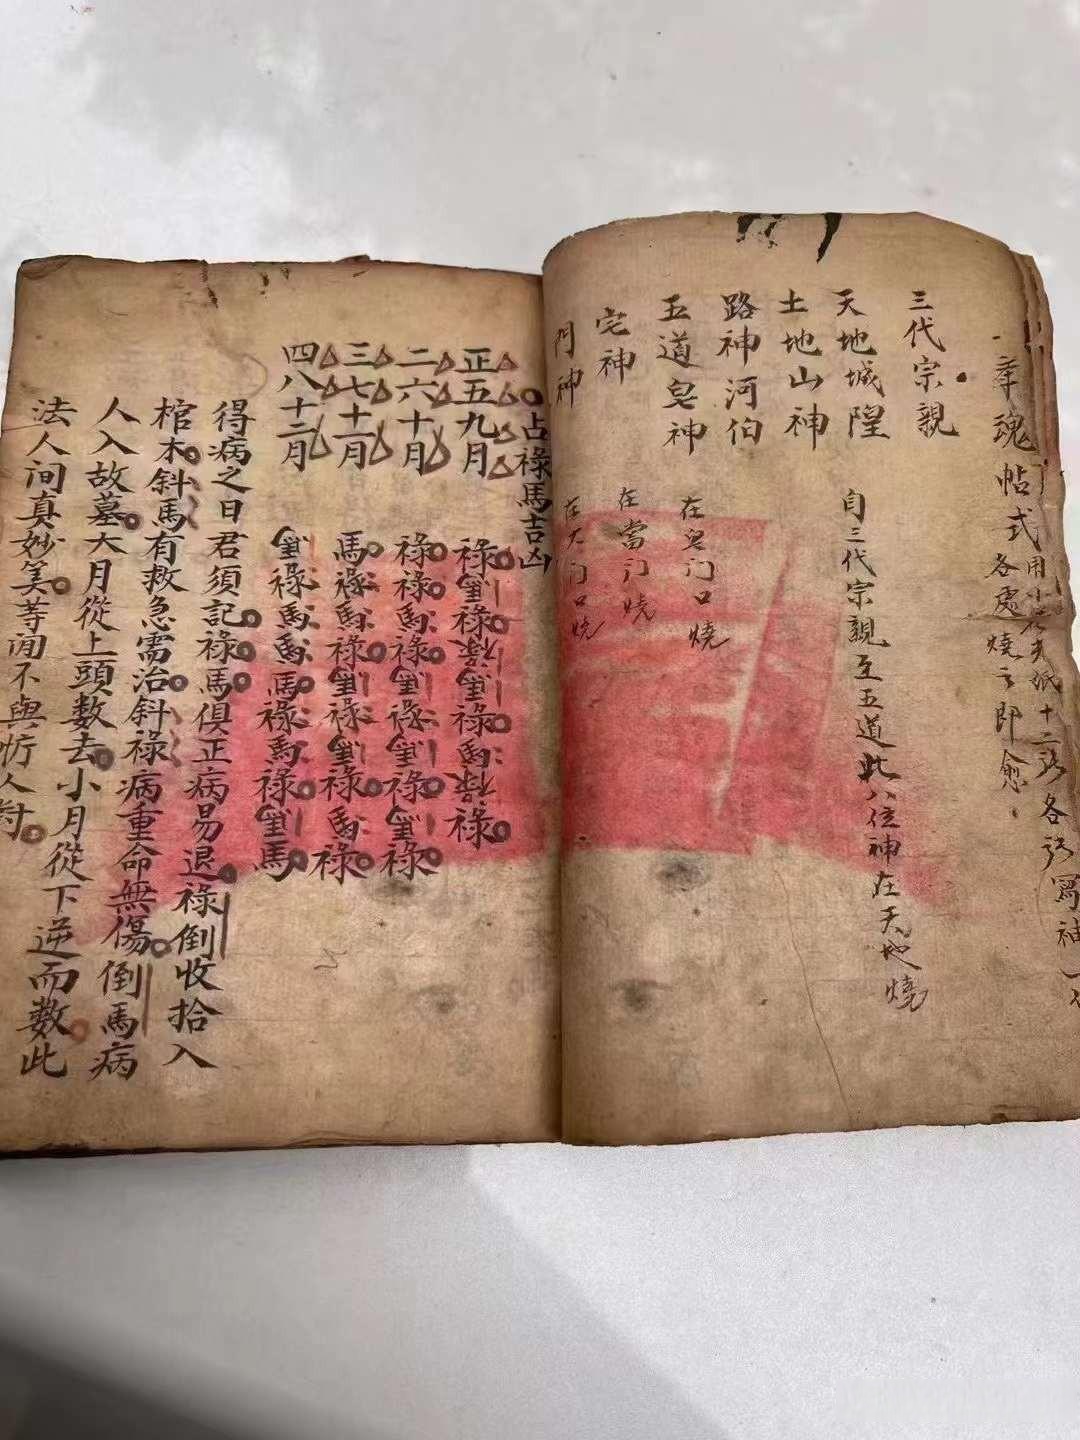 魂帖式
用小
夫紙十二張各張寫神一
各處燒之即愈
三代宗親
天地城隍
自三代宗親至五道此八位神在天地燒
土地山神
路神河伯
五道皂神
在皂门口燒
宅神
在當门燒
門神
在大门口燒
占祿馬吉凶
正五九月
祿祿祿馬祿祿
二六十月
祿祿馬祿祿祿
三七十一月
馬祿馬祿祿祿馬祿
四八十二月
祿馬馬馬祿馬祿馬
得病之日君須記祿馬俱正病易退祿倒收拾入
棺木斜馬有救急需治斜祿病重命無傷倒馬病
人入故墓大月從上頭數去小月從下逆而數此
法人间真妙笑等闲不與忻人討